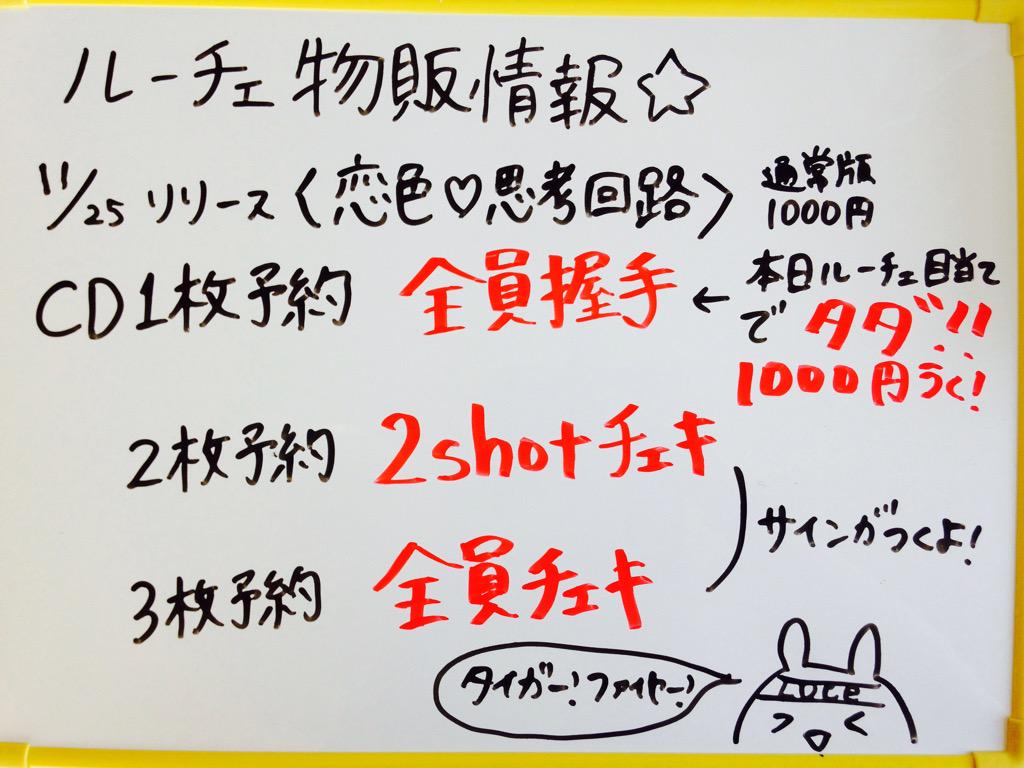 ルーチェ物販情報☆
11/25 リリース〈恋色♡思考回路〉
通常版
1000円
CD1枚予約 全員握手
← 本日ルーチェ目当て
で タダ!!
1000円うく!
2枚予約 2shotチェキ
3枚予約 全員チェキ
サインがつくよ!
タイガー!ファイヤー!
LUCE